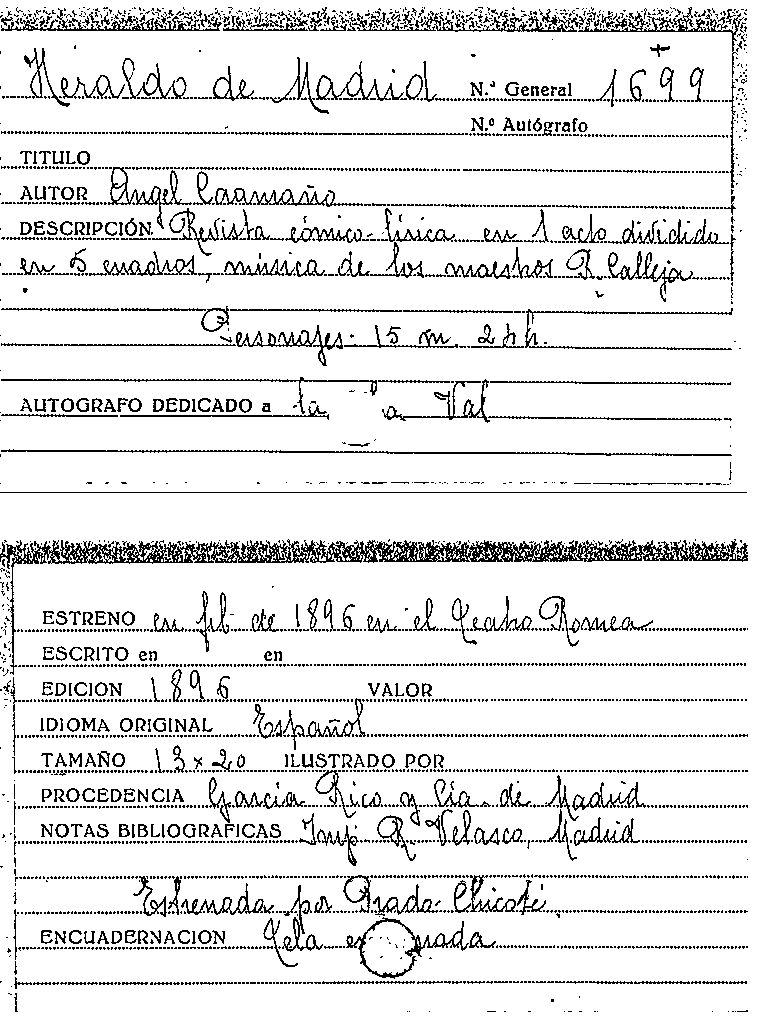 Heraldo de Madrid N.º General 1699
N.º Autógrafo
TITULO
AUTOR Angel Caamaño
DESCRIPCIÓN Revista cómico-lírica en 1 acto dividido
en 5 cuadros, música de los maestros R. Calleja
Personajes- 15 m. 2 h h.
AUTOGRAFO DEDICADO a la Val
ESTRENO en feb de 1896 en el Teatro Romea
ESCRITO en en
EDICION 1896 VALOR
IDIOMA ORIGINAL Español
TAMAÑO 13 x 20 ILUSTRADO POR
PROCEDENCIA García Rico y Cía. de Madrid
NOTAS BIBLIOGRAFICAS Imp R. Velasco, Madrid
Estrenada por Prado-Chicote
ENCUADERNACION Tela